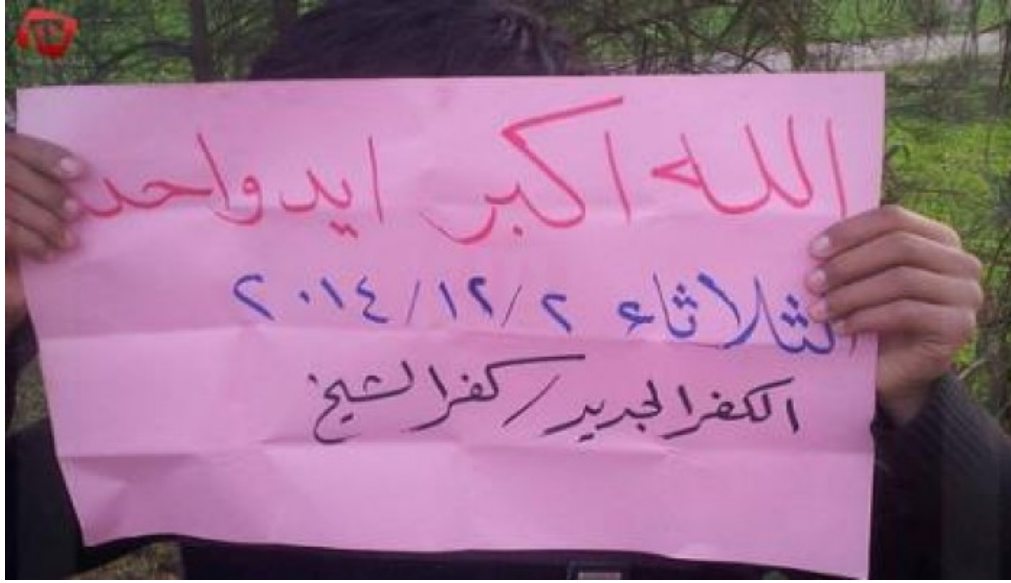 الله اكبر ايد واحدة
الثلاثاء ٢/١٢/٢٠١٤
الكفر الجديد/كفر الشيخ